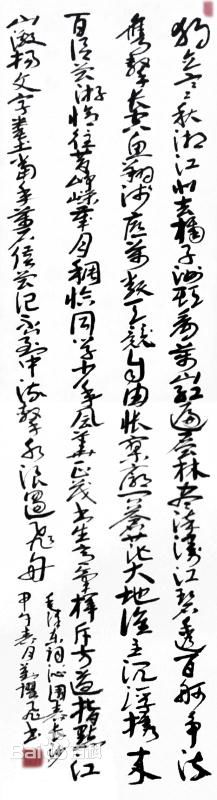 独立寒秋湘江北去橘子洲頭看萬山紅遍層林尽染漫江碧透百舸争流
鹰擊長空鱼翔浅底萬類霜天競自由怅寥廓問苍茫大地谁主沉浮携来
百侣曾游憶往昔峥嵘岁月稠恰同学少年風華正茂书生意气揮斥方遒指點江
山激揚文字粪土當年萬户侯曾记否到中流擊水浪遏飛舟
毛泽东詞沁园春長沙
甲午春月 书
Bai 百科